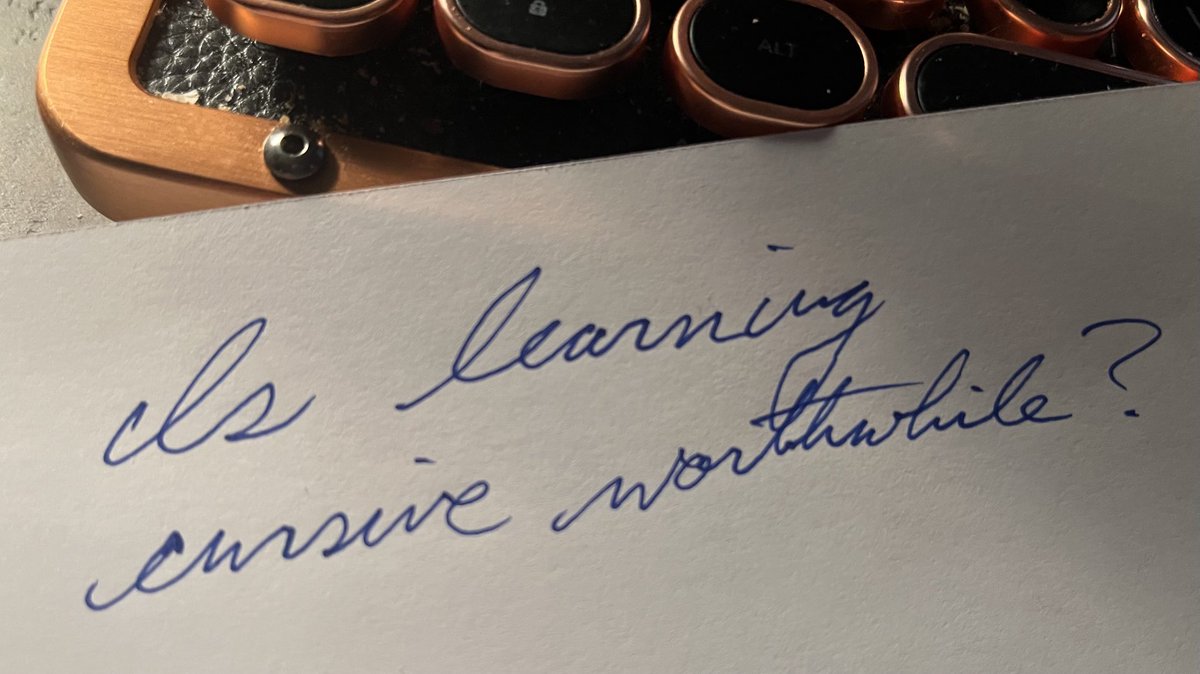 ALT
Is learning
cursive worthwhile?